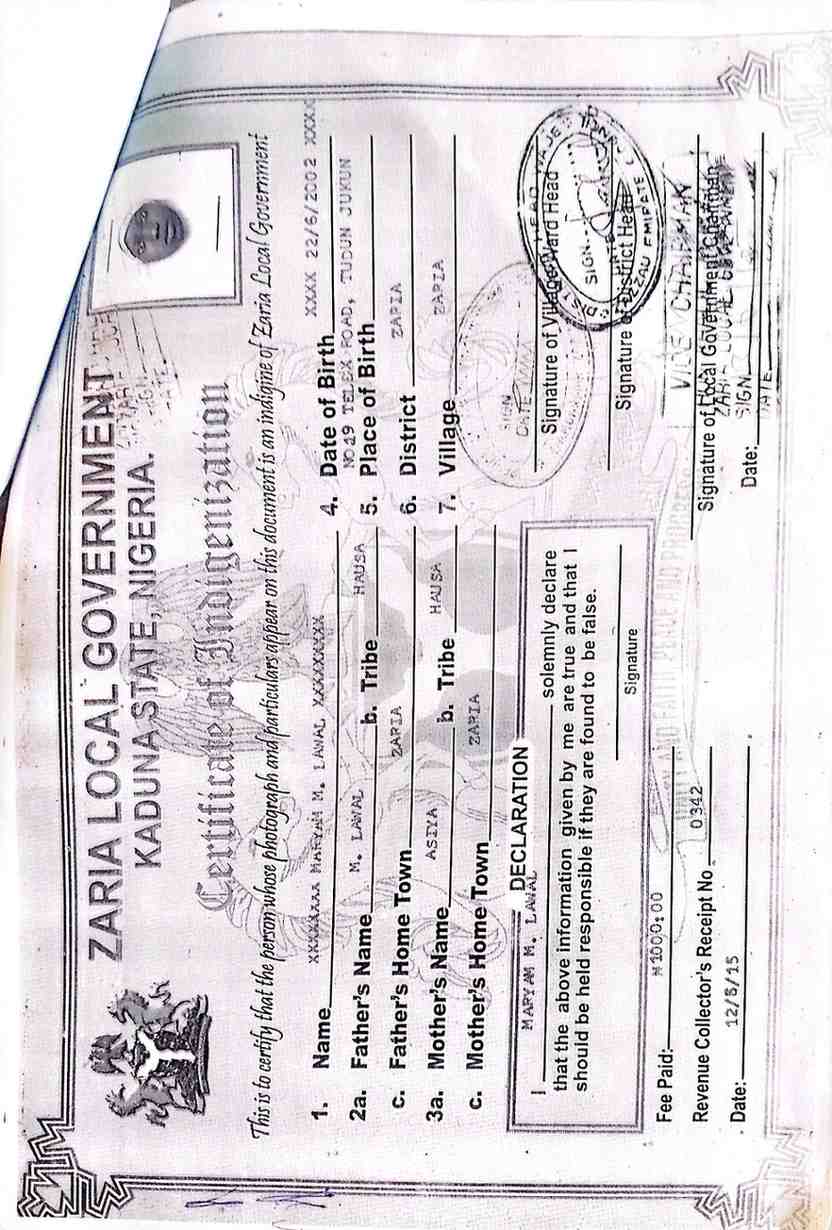 ZARIA LOCAL GOVERNMENT
KADUNA STATE, NIGERIA.
Certificate of Indigenization
This is to certify that the person whose photograph and particulars appear on this document is an indigine of Zaria Local Government
1. Name XXXXXXXX MARYAM M. LAWAL XXXXXXXXX
2a. Father's Name M. LAWAL b. Tribe HAUSA
c. Father's Home Town ZARIA
3a. Mother's Name ASIYA b. Tribe HAUSA
c. Mother's Home Town ZARIA
4. Date of Birth XXXX 22/6/2002 XXXX
NO29 TELEX ROAD, TUDUN JUKUN
5. Place of Birth
6. District ZARIA
7. Village ZARIA
DECLARATION
I MARYAM M. LAWAL solemnly declare
that the above information given by me are true and that I
should be held responsible if they are found to be false.
Signature
SIGN
DATE
Signature of Village/Ward Head
DISTRICT HEAD WAJE
SIGN
DATE
ZAZZAU EMIRATE COUNCIL
Signature of District Head
UNITY AND FAITH PEACE AND PROGRESS
Fee Paid: ₦100,0:00
Revenue Collector's Receipt No 0342
Date: 12/8/15
VICE CHAIRMAN
Signature of Local Government Chairman
ZARIA LOCAL GOVERNMENT
SIGN
DATE
Date: